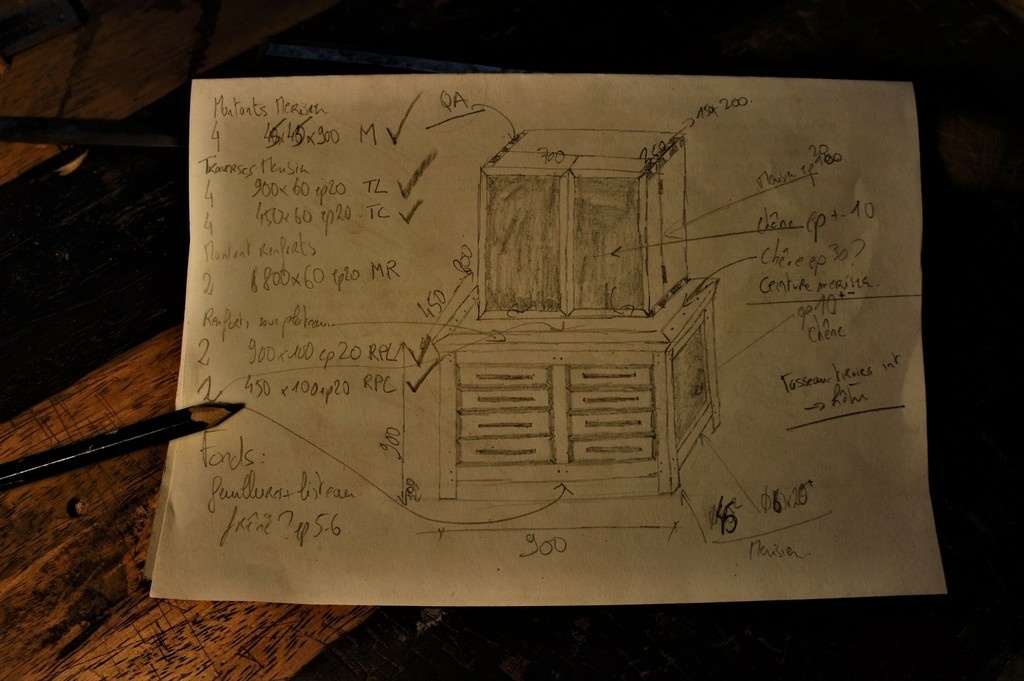 Montants Merisier
4 45x45x900 M
Traverses Merisier
4 900x60 ep20 TL
4 450x60 ep20 - TC
Montant renforts
2 800x60 ep20 MR
Renforts sous plateau
2 900x100 ep20 RPL
2 450x100 ep20 RPC
Fonds:
feuillures + listeau
frêne? ep 5-6
QA
700
250
150 200
800
450
900
900
Merisier ep 20
Chêne ep +-10
Chêne ep 30?
Ceinture merisier
ep 10 +-
Chêne
Tasseau tiroirs int
→ hêtre
45
Merisier